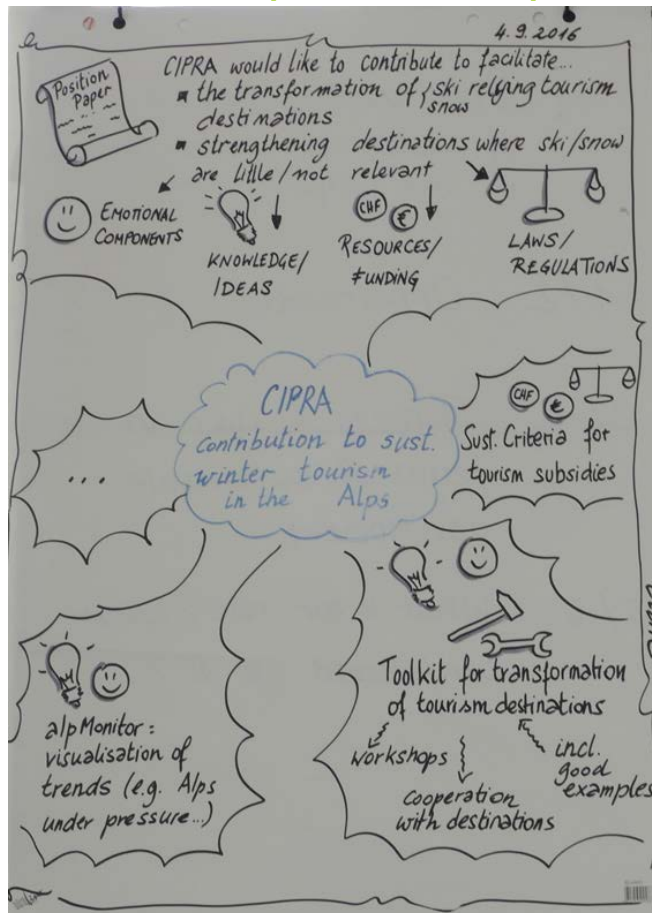 4.9.2016
Position
Paper
CIPRA would like to contribute to facilitate...
the transformation of ski relying tourism
snow
destinations
strengthening destinations where ski/snow
are little/not relevant
EMOTIONAL
COMPONENTS
KNOWLEDGE/
IDEAS
CHF €
RESOURCES/
FUNDING
LAWS/
REGULATIONS
CIPRA
contribution to sust.
winter tourism
in the Alps
CHF €
Sust. Criteria for
tourism subsidies
...
Toolkit for transformation
of tourism destinations
workshops
cooperation
with destinations
incl.
good
examples
alpMonitor:
visualisation of
trends (e.g. Alps
under pressure...)